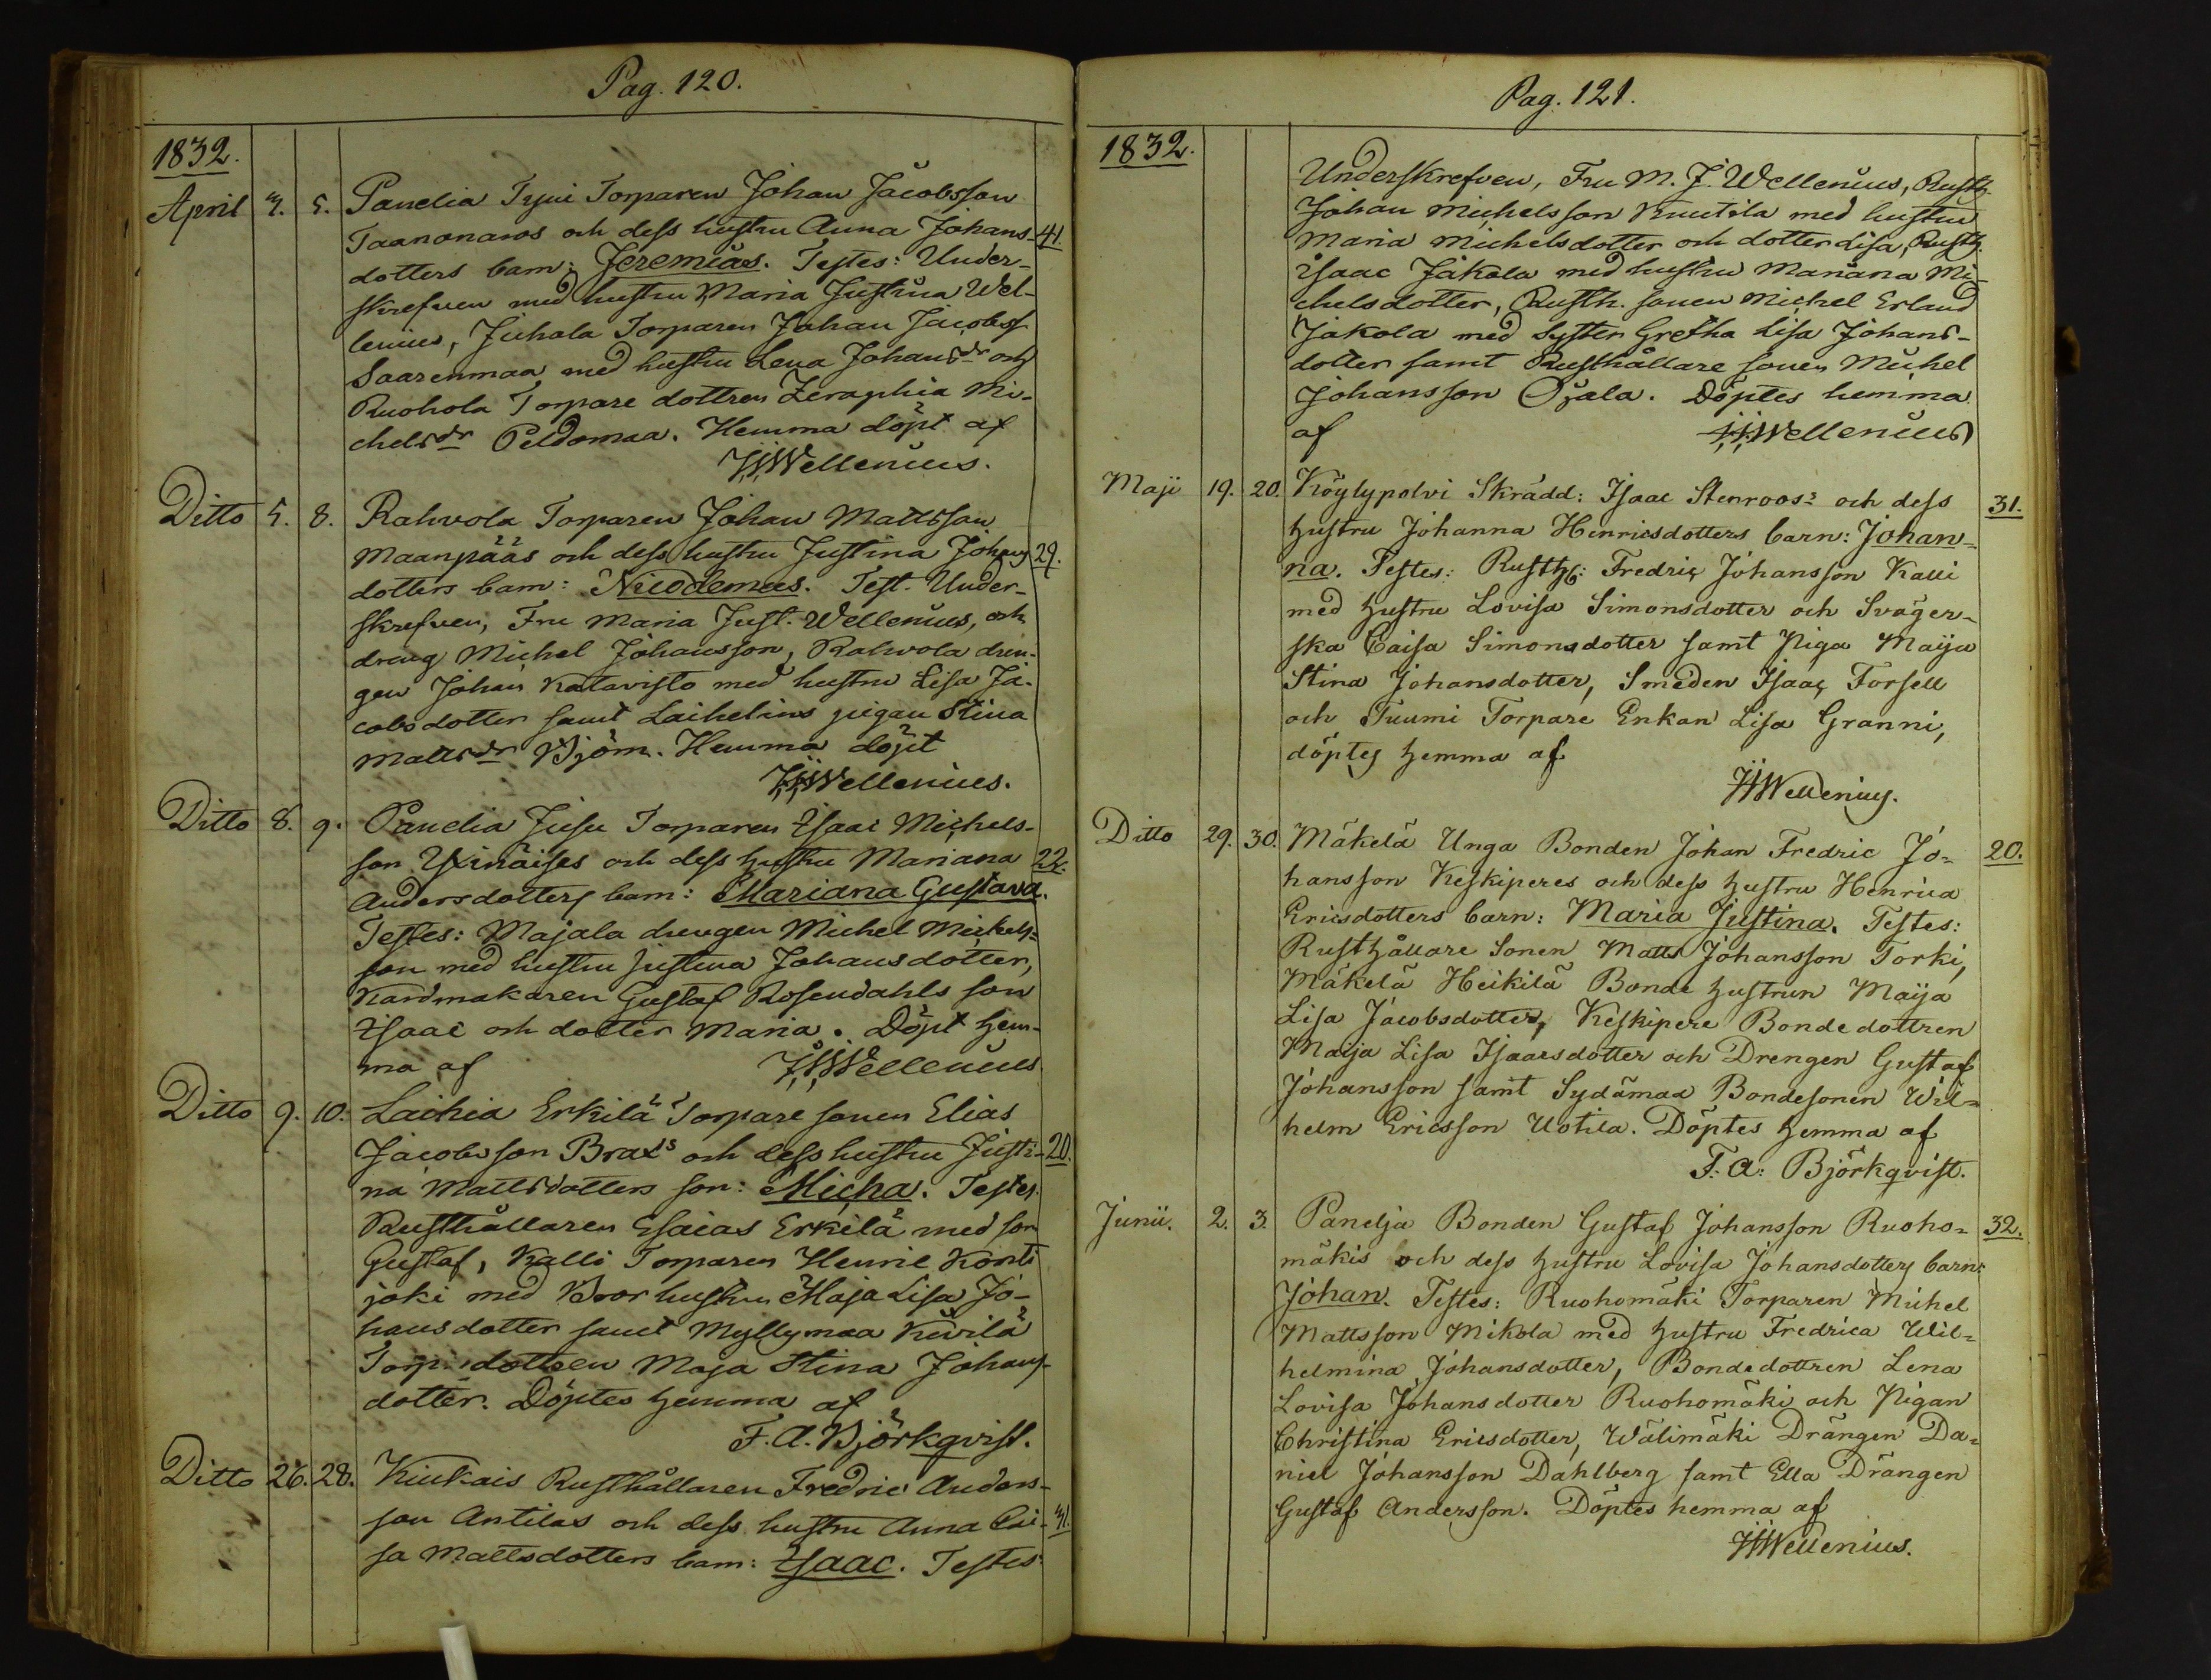 Pag. 120.
1832.
April 4. 5. Panelia Tyni Torparen Johan Jacobsson
Taanonaros och dess hustru Anna Johans- 41.
dotters barn: Jeremias. Testes: Under-
skrefven med hustru Maria Justina Wel-
lenius, Juhala Torparen Johan Jacobss.
Saarenmaa med hustru Lena Johansdr och
Ruohola Torpare dottren Zeraphia Mi-
chelsdr Peldomaa. Hemma döpt af
JJWellenius.
Ditto 5. 8. Rahvola Torparen Johan Mattsson
Maanpääs och dess hustru Justina Johans 29.
dotters barn: Nicodemus. Test. Under-
skrefven, Fru Maria Just. Wellenius, och
dreng Michel Johansson, Rahvola dren-
gen Johan Katavisto med hustru Lisa Ja-
cobsdotter samt Laihelins pigan Stina
Mattsdr Björn. Hemma döpt
JJWellenius.
Ditto 8. 9. Panelia Jusu Torparen Isaac Michels-
son Yxinäises och dess hustru Mariana 22.
Andersdotters barn: Mariana Gustava.
Testes: Majala drengen Michel Michels-
son med hustru Justina Johansdotter,
Kardmakaren Gustaf Rosendahls son
Isaac och dotter Maria. Döpt hem-
ma af JJWellenius
Ditto 9. 10. Laihia Erkilä Torpare sonen Elias
Jacobsson Brax's och dess hustru Justi- 20.
na Mattsdotters son: Micha. Testes.
Rusthållaren Esaias Erkilä med son
Gustaf, Kalli Torparen Henric Konti
joki med Bror hustru Maja Lisa Jo-
hansdotter samt Myllymaa Kivilä
Torp. dottren Maja Stina Johans-
dotter. Döptes hemma af
F. A. Björkqvist.
Ditto 26. 28. Kiukais Rusthållaren Fredric Anders-
son Antilas och dess hustru Anna Cai- 41.
sa Mattsdotters barn: Isaac. Testes:
Pag. 121.
1832.
Underskrefven, Fru M. J. Wellenius, Rusth.
Johan Michelsson Knutila med hustru
Maria Michelsdotter och dotter Lisa, Rusth.
Isaac Jakola med hustru Mariana Mi-
chelsdotter, Rusth. sonen Michel Erland
Jakola med Syster Gretha Lisa Johans-
dotter samt Rusthållare sonen Michel
Johansson Ojala. Döptes hemma
af JJWellenius
Maji 19. 20. Köylypolvi Skrädd: Isaac Stenroos's och dess 31.
hustru Johanna Henricsdotters barn: Johan-
na. Testes: Rusth: Fredric Johansson Kalli
med hustru Lovisa Simonsdotter och Sväger-
ska Caisa Simonsdotter samt Piga Maija
Stina Johansdotter, Smeden Isaac Forsell
och Tuumi Torpare Enkan Lisa Granni,
döptes hemma af
JJWellenius.
Ditto 29. 30. Mäkelä Unga Bonden Johan Fredric Jo- 20.
hansson Keskiperes och dess hustru Henrica
Ericsdotters barn: Maria Justina. Testes:
Rusthållare Sonen Matts Johansson Torki,
Mäkelä Heikilä Bonde hustrun Maija
Lisa Jacobsdotter, Keskipere Bondedottren
Maija Lisa Isaacsdotter och Drengen Gustaf
Johansson samt Sydämaa Bondesonen Wil-
helm Ericsson Uotila. Döptes hemma af
F: A: Björkqvist.
Junii. 2. 3. Panelja Bonden Gustaf Johansson Ruoho- 32.
mäkis och dess hustru Lovisa Johansdotters barn:
Johan. Testes: Ruohomäki Torparen Michel
Mattsson Mikola med hustru Fredrica Wil-
helmina Johansdotter, Bondedottren Lena
Lovisa Johansdotter Ruohomäki och Pigan
Christina Ericsdotter, Wälimäki Drängen Da-
niel Johansson Dahlberg samt Ella Drängen
Gustaf Andersson. Döptes hemma af
JJWellenius.